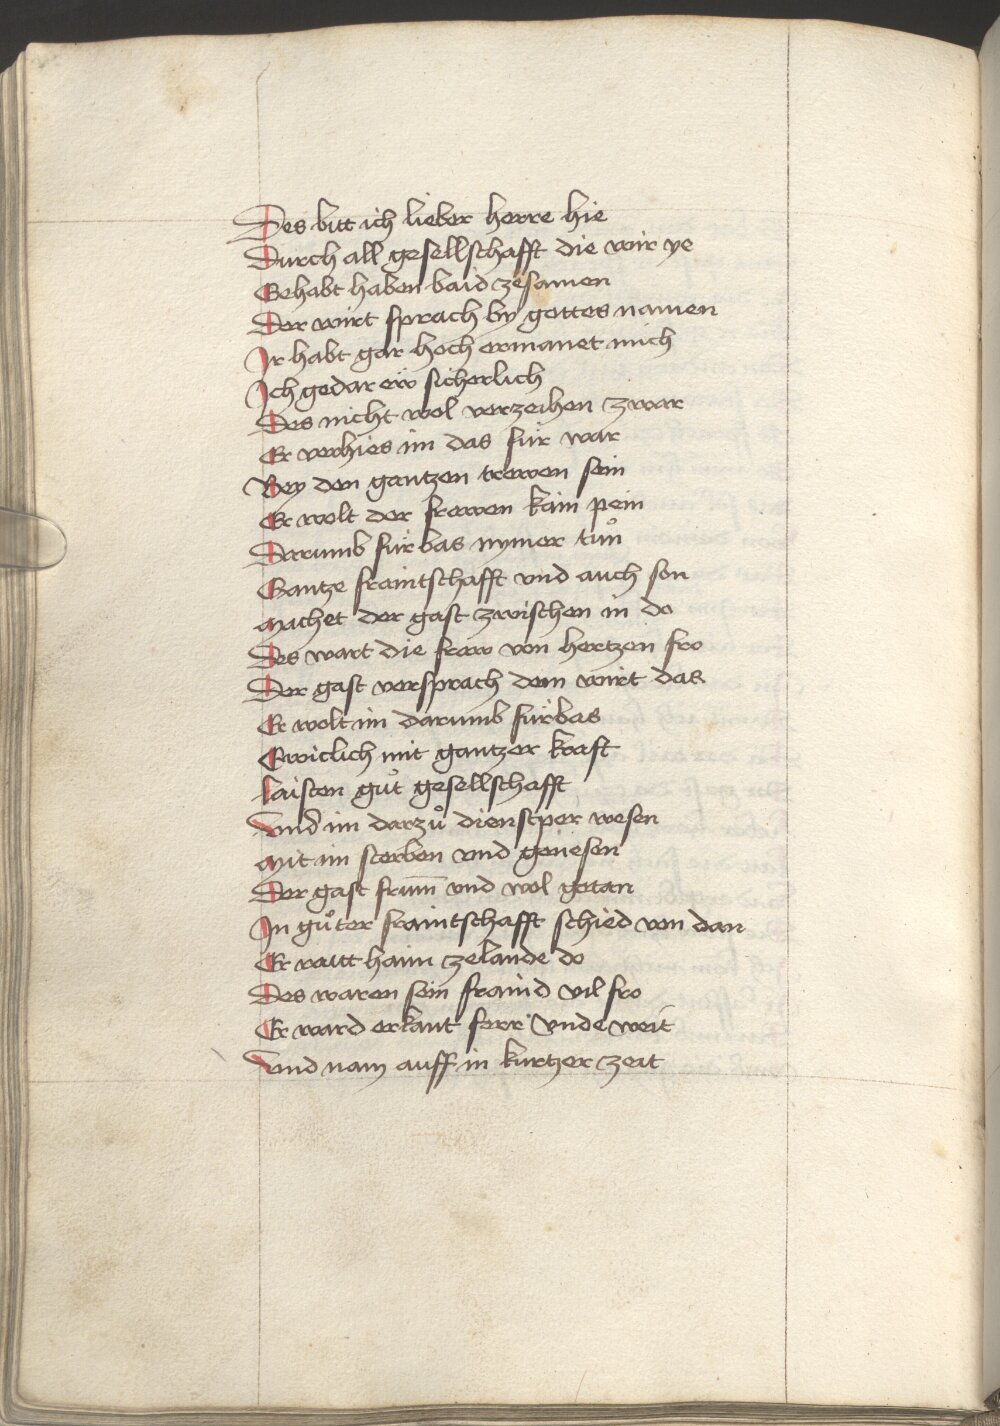 Des bitt ich lieber herre hie
Durch all gesellschafft die wir ye
Gehabt haben baid zesamen
Der wirt sprach by gottes namen
Ir habt gar hoch ermanet mich
Ich gedar ew sicherlich
Des nicht wol verzeihen zwar
Er verhies im das für war
Bey den gantzen trewen sein
Er wolt der frawen kain pein
Darumb fürbas nymer tuͦn
Gantze fraintschafft vnd auch son
Machet der gast zwischen in do
Des wart die fraw von hertzen fro
Der gast versprach dem wirt das
Er wolt im darumb fürbas
Ewiclich mit gantzer kraft
laisten guͦt gesellschafft
Vnd im darzuͦ dienstper wesen
Mit im sterben vnd genesen
Der gast frum̄ vnd wol getan
In guͦter fraintschafft schied von dan
Er raitt haim zelande do
Des waren sein fraind vil fro
Er ward erkant ferr vnde weit
Vnd nam auff in kurtzer zeit